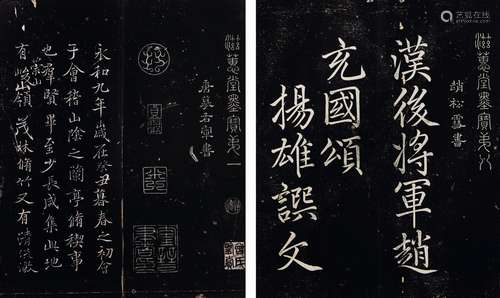 滋蕙堂墨寶卷一
唐摹右軍書
永和九年歲在癸丑暮春之初會
于會稽山陰之蘭亭脩稧事
也羣賢畢至少長咸集此地
有崇山峻領茂林脩竹又有清流激
滋蕙堂墨寶卷八
趙松雪書
漢後將軍趙
充國頌
揚雄譔文